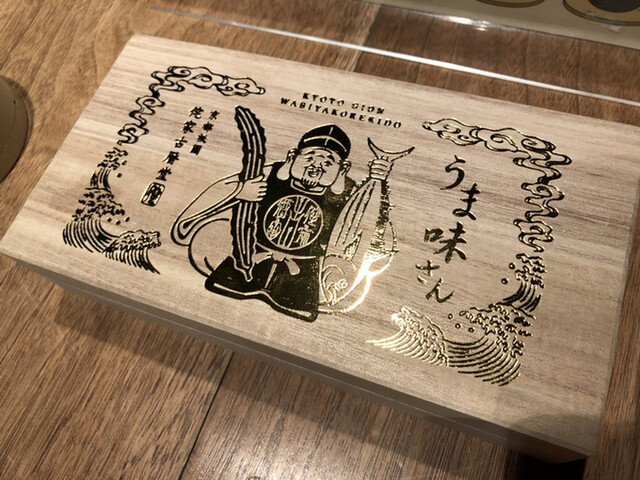 KYOTO GION
WABIYAKOREKIDO
うま味さん
京都祇園
侘家古暦堂